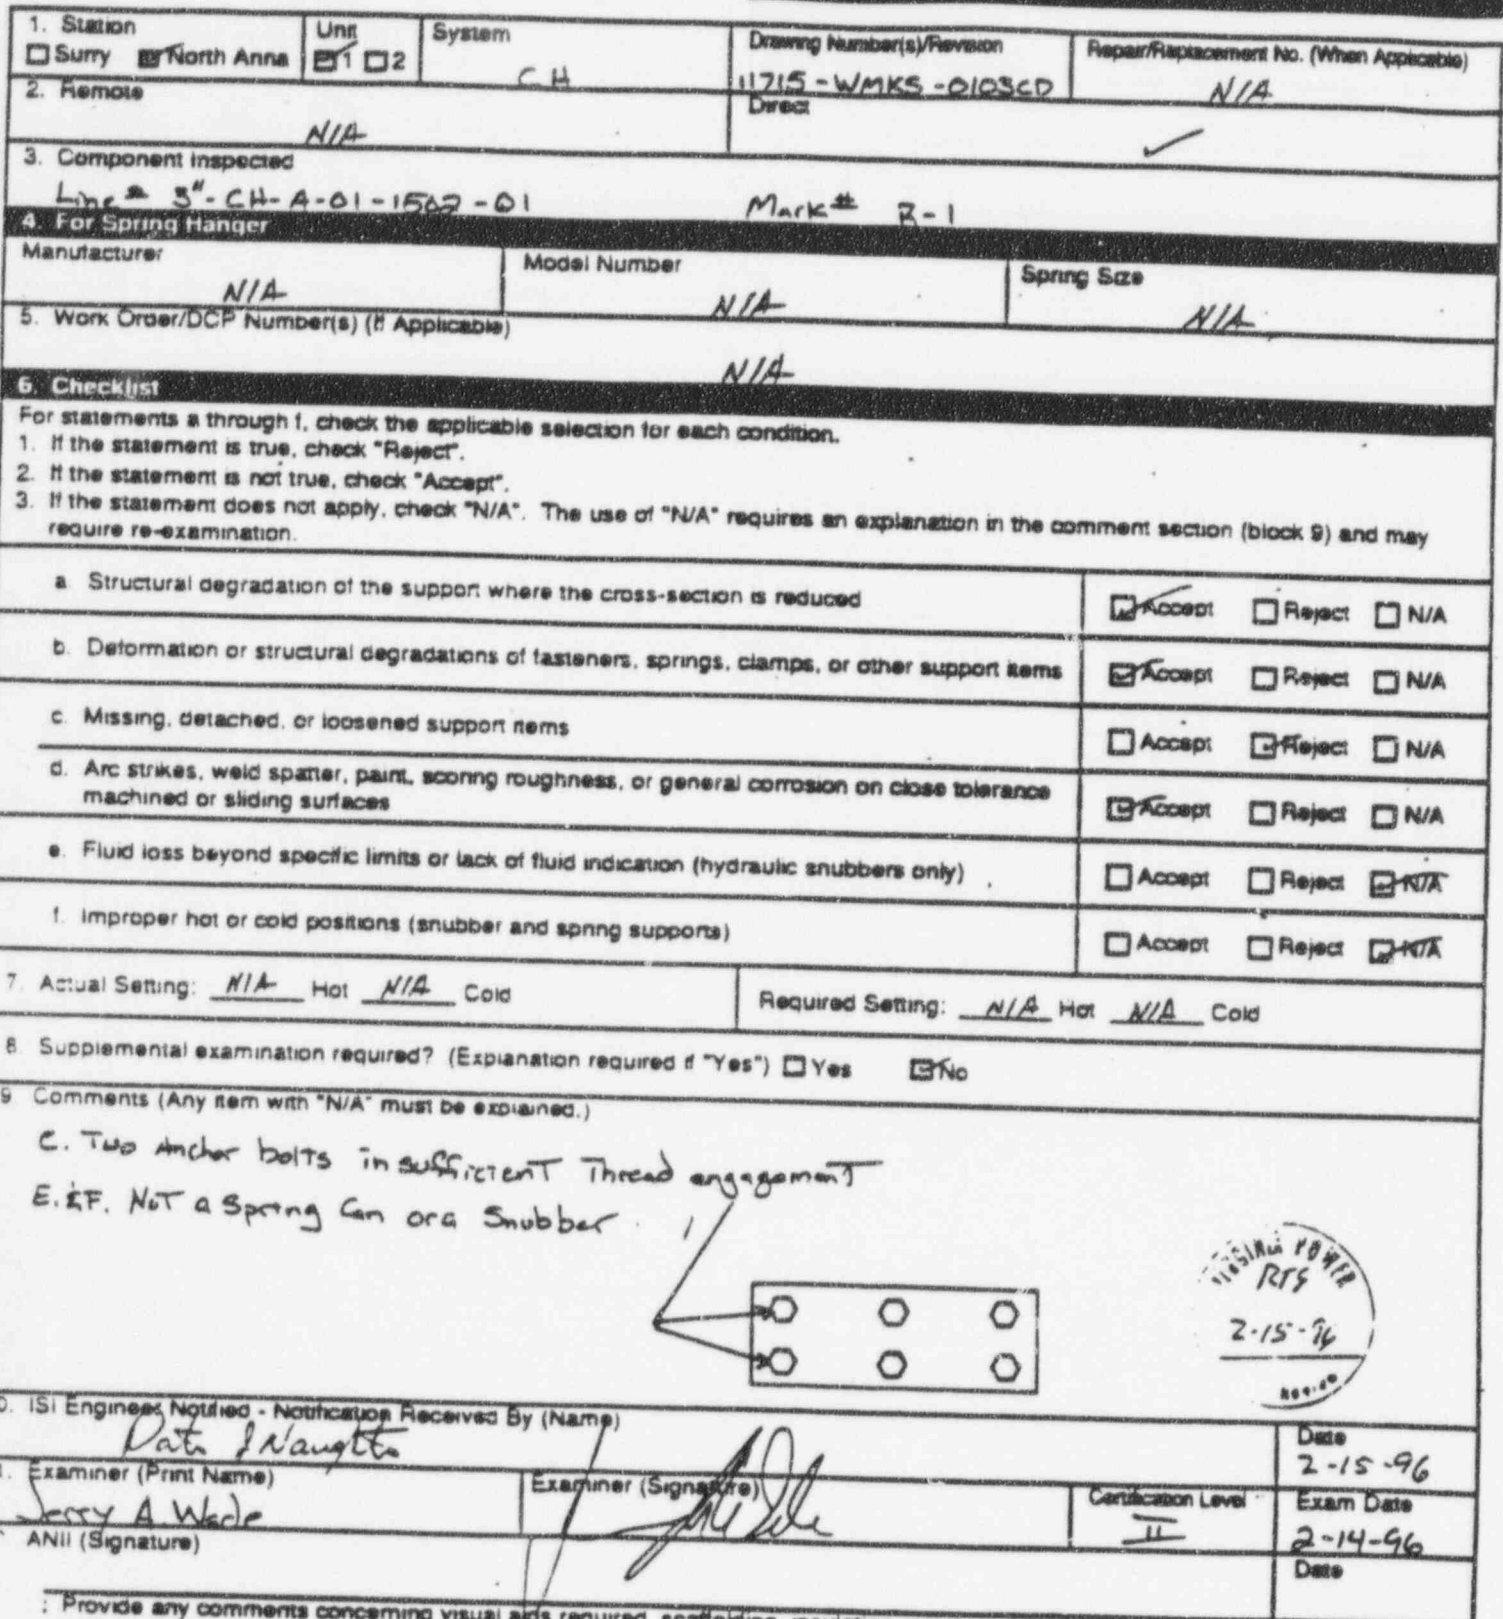 1. Station
☐ Surry ☑ North Anna
Unit
☑ 1 ☐ 2
System
CH
Drawing Number(s)/Revision
11715-WMKS-0103CD
Repair/Replacement No. (When Applicable)
N/A
2. Remote
N/A
Direct
✓
3. Component Inspected
Line # 3"-CH-A-01-1502-01
Mark # R-1
4. For Spring Hanger
Manufacturer
N/A
Model Number
N/A
Spring Size
N/A
5. Work Order/DCP Number(s) (If Applicable)
N/A
6. Checklist
For statements a through f, check the applicable selection for each condition.
1. If the statement is true, check "Reject".
2. If the statement is not true, check "Accept".
3. If the statement does not apply, check "N/A". The use of "N/A" requires an explanation in the comment section (block 9) and may
require re-examination.
a. Structural degradation of the support where the cross-section is reduced ☑ Accept ☐ Reject ☐ N/A
b. Deformation or structural degradations of fasteners, springs, clamps, or other support items ☑ Accept ☐ Reject ☐ N/A
c. Missing, detached, or loosened support items ☐ Accept ☑ Reject ☐ N/A
d. Arc strikes, weld spatter, paint, scoring roughness, or general corrosion on close tolerance
machined or sliding surfaces ☑ Accept ☐ Reject ☐ N/A
e. Fluid loss beyond specific limits or lack of fluid indication (hydraulic snubbers only) ☐ Accept ☐ Reject ☑ N/A
f. Improper hot or cold positions (snubber and spring supports) ☐ Accept ☐ Reject ☑ N/A
7. Actual Setting: N/A Hot N/A Cold
Required Setting: N/A Hot N/A Cold
8. Supplemental examination required? (Explanation required if "Yes") ☐ Yes ☑ No
9 Comments (Any item with "N/A" must be explained.)
C. Two Anchor bolts insufficient Thread engagement
E. & F. Not a Spring Can or a Snubber.
VIRGINIA POWER
RTS
2-15-96
0. ISI Engineer Notified - Notification Received By (Name)
Date
2-15-96
1. Examiner (Print Name)
Jerry A. Wade
Examiner (Signature)
Certification Level
II
Exam Date
2-14-96
ANII (Signature)
Date
: Provide any comments concerning visual aids required,